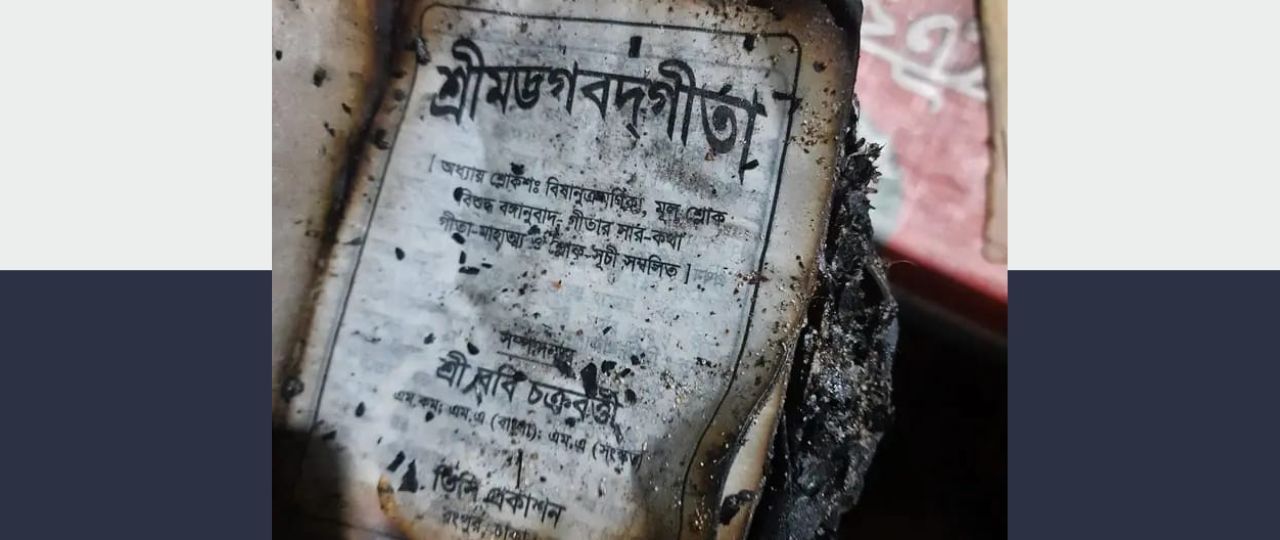 শ্রীমদ্ভগবদ্‌গীতা
[ অধ্যায় শ্লোকশঃ বিষয়ানুক্রমণিকা, মূল শ্লোক
বিশুদ্ধ বঙ্গানুবাদ, গীতার সার-কথা
গীতা-মাহাত্ম্য ও শ্লোক-সূচী সম্বলিত ]
সম্পাদনায়
শ্রী রবি চক্রবর্ত্তী
এম.কম; এম.এ (বাংলা); এম.এ (সংস্কৃত)
প্রকাশন
রংপুর, ঢাকা